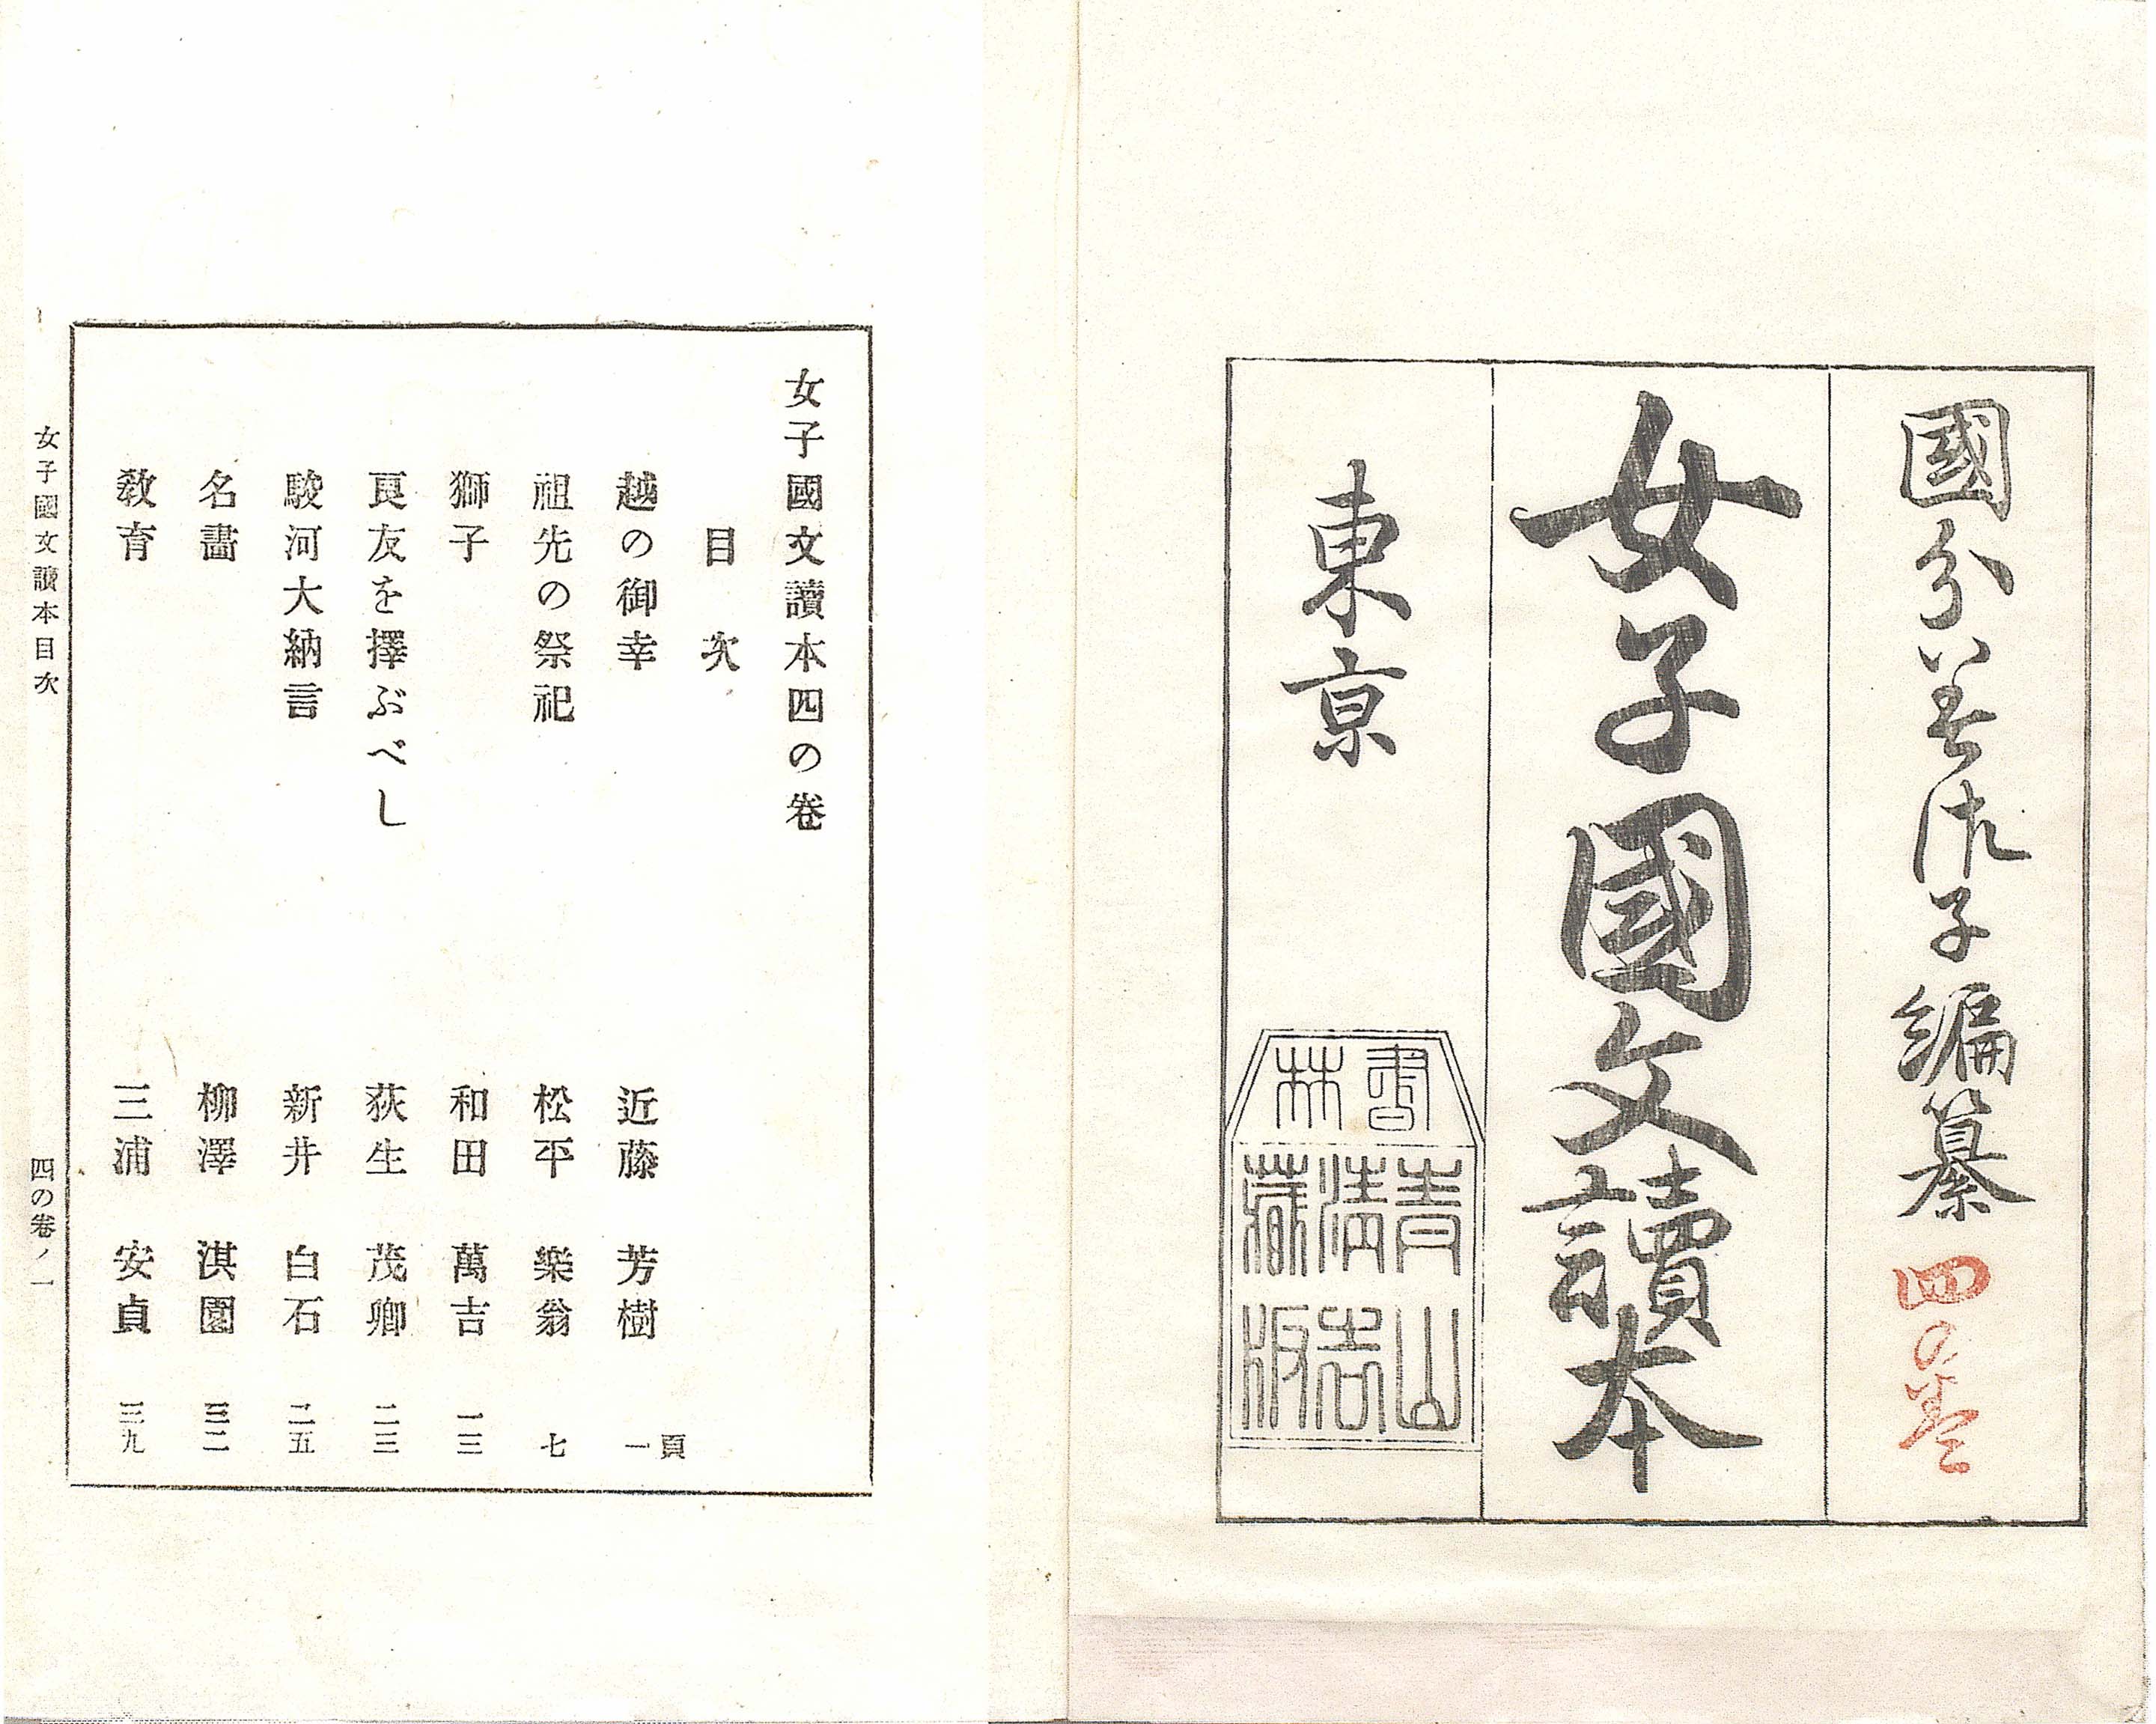 國分 子編纂 四の卷
女子國文讀本
東京
書林
青山
清吉
藏版
女子國文讀本四の卷
目次
頁
越の御幸 近藤芳樹 一
祖先の祭祀 松平樂翁 七
獅子 和田萬吉 一三
良友を擇ぶべし 荻生茂卿 二三
駿河大納言 新井白石 二五
名畵 柳澤淇園 三二
敎育 三浦安貞 三九
女子國文讀本目次 四の卷ノ一